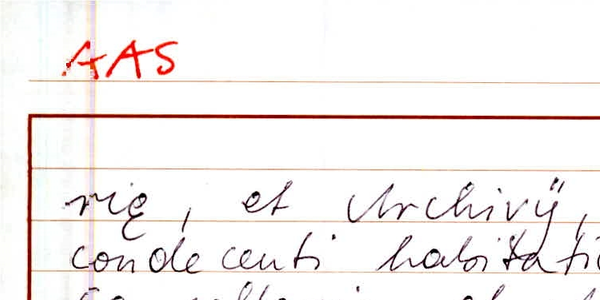 AAS
rię, et Archivÿ,
condecenti habitatio